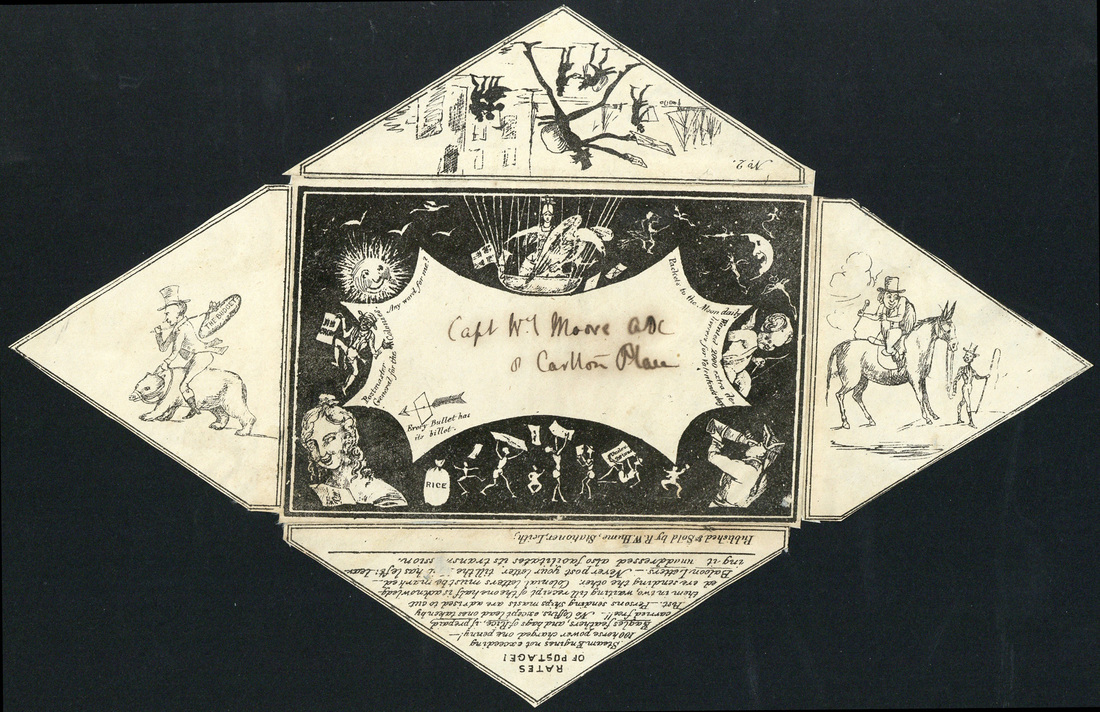 No 2.
Any word for me?
Postmaster
General for the Evening.
Packets to the Moon daily
Capt Wm Moore ADC
8 Carlton Place
Every Bullet has
its billet.
RICE
THE BUDGET
RATES
OF POSTAGE!
Steam Engines not exceeding
100 horse power charged one penny!
Eagles feathers, and bags of Rice, if prepaid,
carried free!! No Coffins except lead ones taken by
Post. Persons sending Ships masts are advised to cut
them in two, waiting till receipt of the one half is acknowledg
ed ere sending the other. Colonial letters must be marked
Baloon Letters. Never post your letter till the it has left: leav-
ing it unaddressed also facilitates its trans mission.
Published & Sold by R.W. Hume, Stationer, Leith,